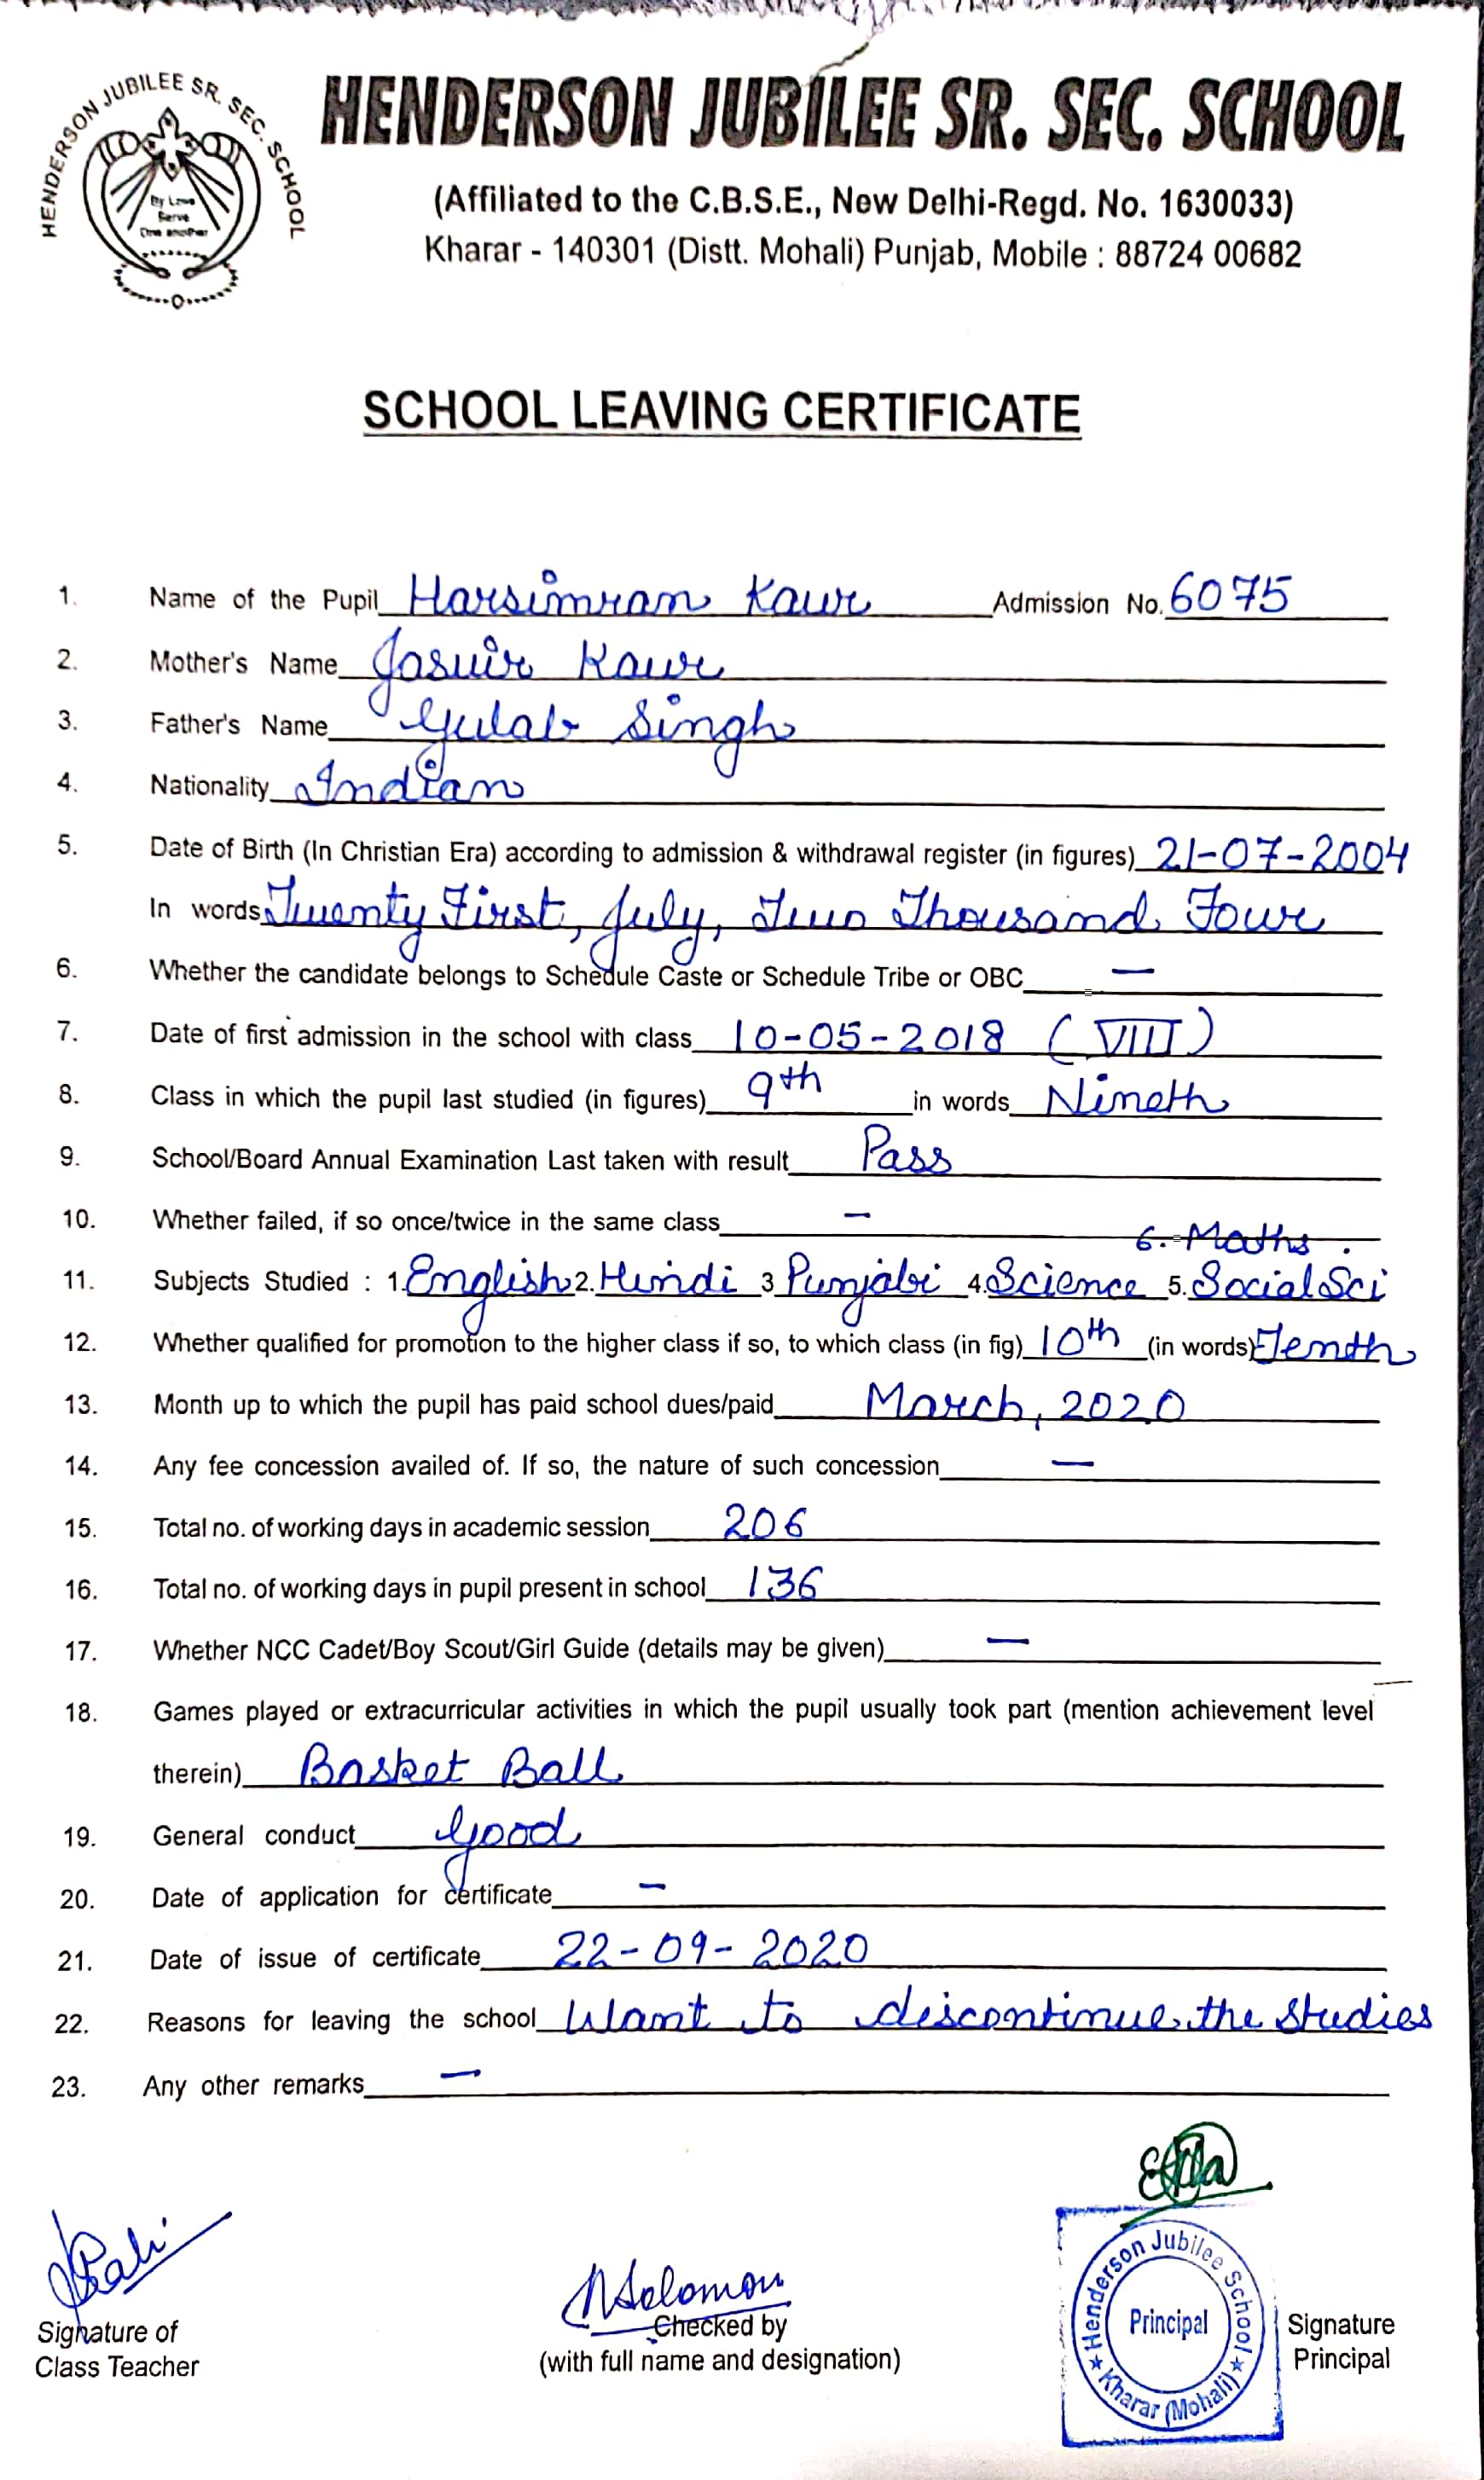 HENDERSON JUBILEE SR. SEC. SCHOOL
By Love
Serve
One another
HENDERSON JUBILEE SR. SEC. SCHOOL
(Affiliated to the C.B.S.E., New Delhi-Regd. No. 1630033)
Kharar - 140301 (Distt. Mohali) Punjab, Mobile : 88724 00682
SCHOOL LEAVING CERTIFICATE
1. Name of the Pupil Harsimran Kaur Admission No. 6075
2. Mother's Name Jasvir Kaur
3. Father's Name Gulab Singh
4. Nationality Indian
5. Date of Birth (In Christian Era) according to admission & withdrawal register (in figures) 21-07-2004
In words Twenty First, July, Two Thousand Four
6. Whether the candidate belongs to Schedule Caste or Schedule Tribe or OBC —
7. Date of first admission in the school with class 10-05-2018 (VIII)
8. Class in which the pupil last studied (in figures) 9th in words Nineth
9. School/Board Annual Examination Last taken with result Pass
10. Whether failed, if so once/twice in the same class —
6. Maths.
11. Subjects Studied : 1. English 2. Hindi 3 Punjabi 4. Science 5. Social Sci
12. Whether qualified for promotion to the higher class if so, to which class (in fig) 10th (in words) Tenth
13. Month up to which the pupil has paid school dues/paid March, 2020
14. Any fee concession availed of. If so, the nature of such concession —
15. Total no. of working days in academic session 206
16. Total no. of working days in pupil present in school 136
17. Whether NCC Cadet/Boy Scout/Girl Guide (details may be given) —
18. Games played or extracurricular activities in which the pupil usually took part (mention achievement level
therein) Basket Ball
19. General conduct Good
20. Date of application for certificate —
21. Date of issue of certificate 22-09-2020
22. Reasons for leaving the school Want to discontinue the studies
23. Any other remarks —
NSolomon
Signature of
Class Teacher
Checked by
(with full name and designation)
Henderson Jubilee School
Principal
★ Kharar (Mohali) ★
Signature
Principal